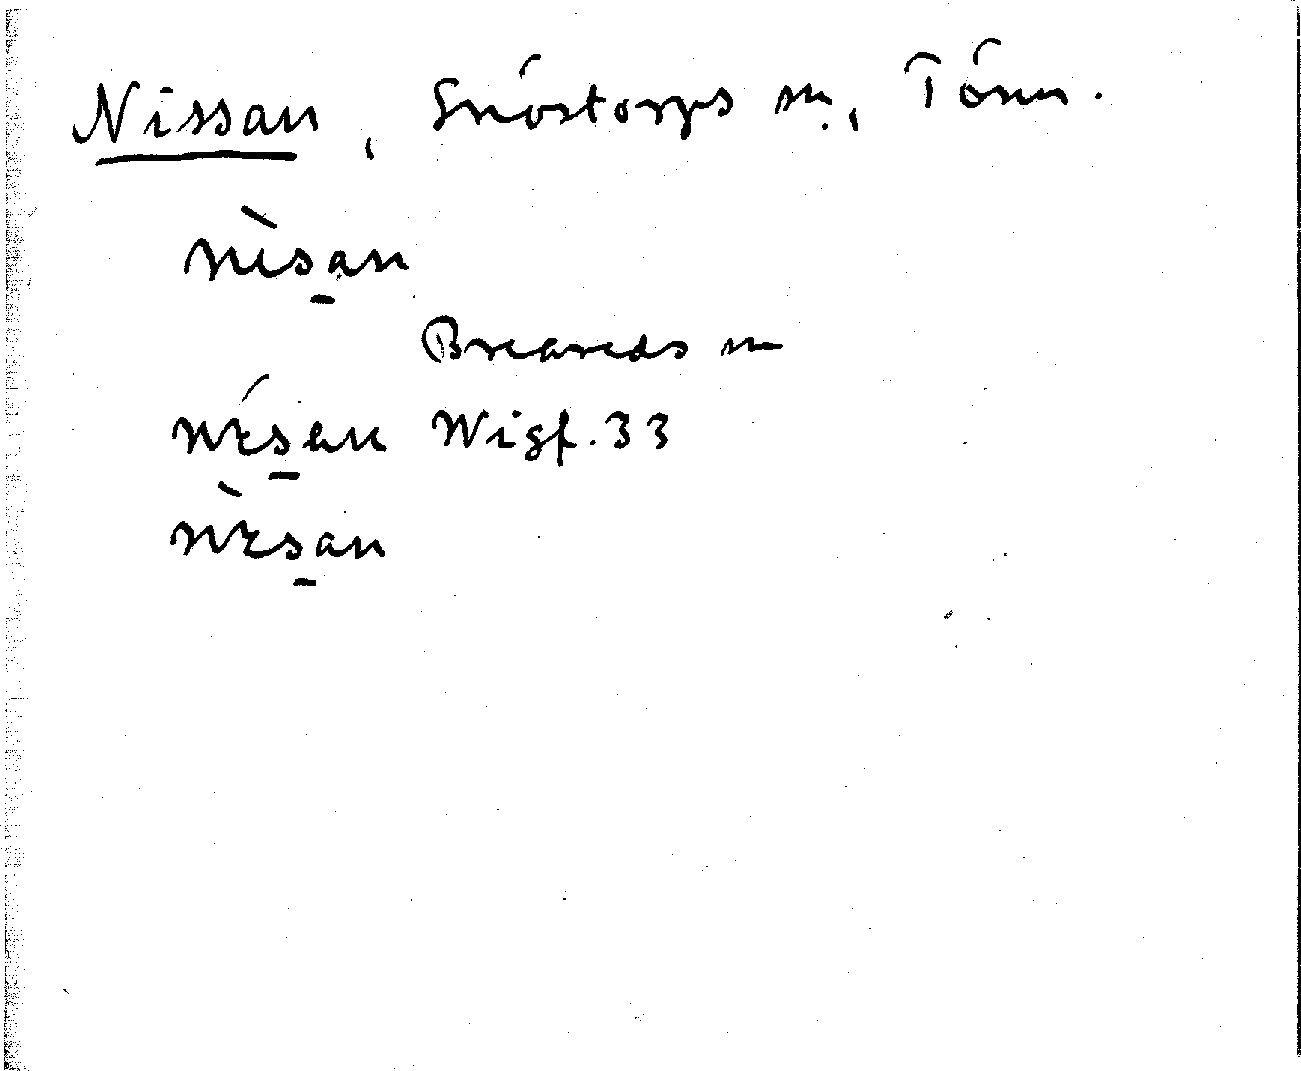 Nissan, Snöstorps sn., Tönn.
nìs̱an
Breareds sn
nɪ́s̱an Wigf. 33
nɪ̀s̱an